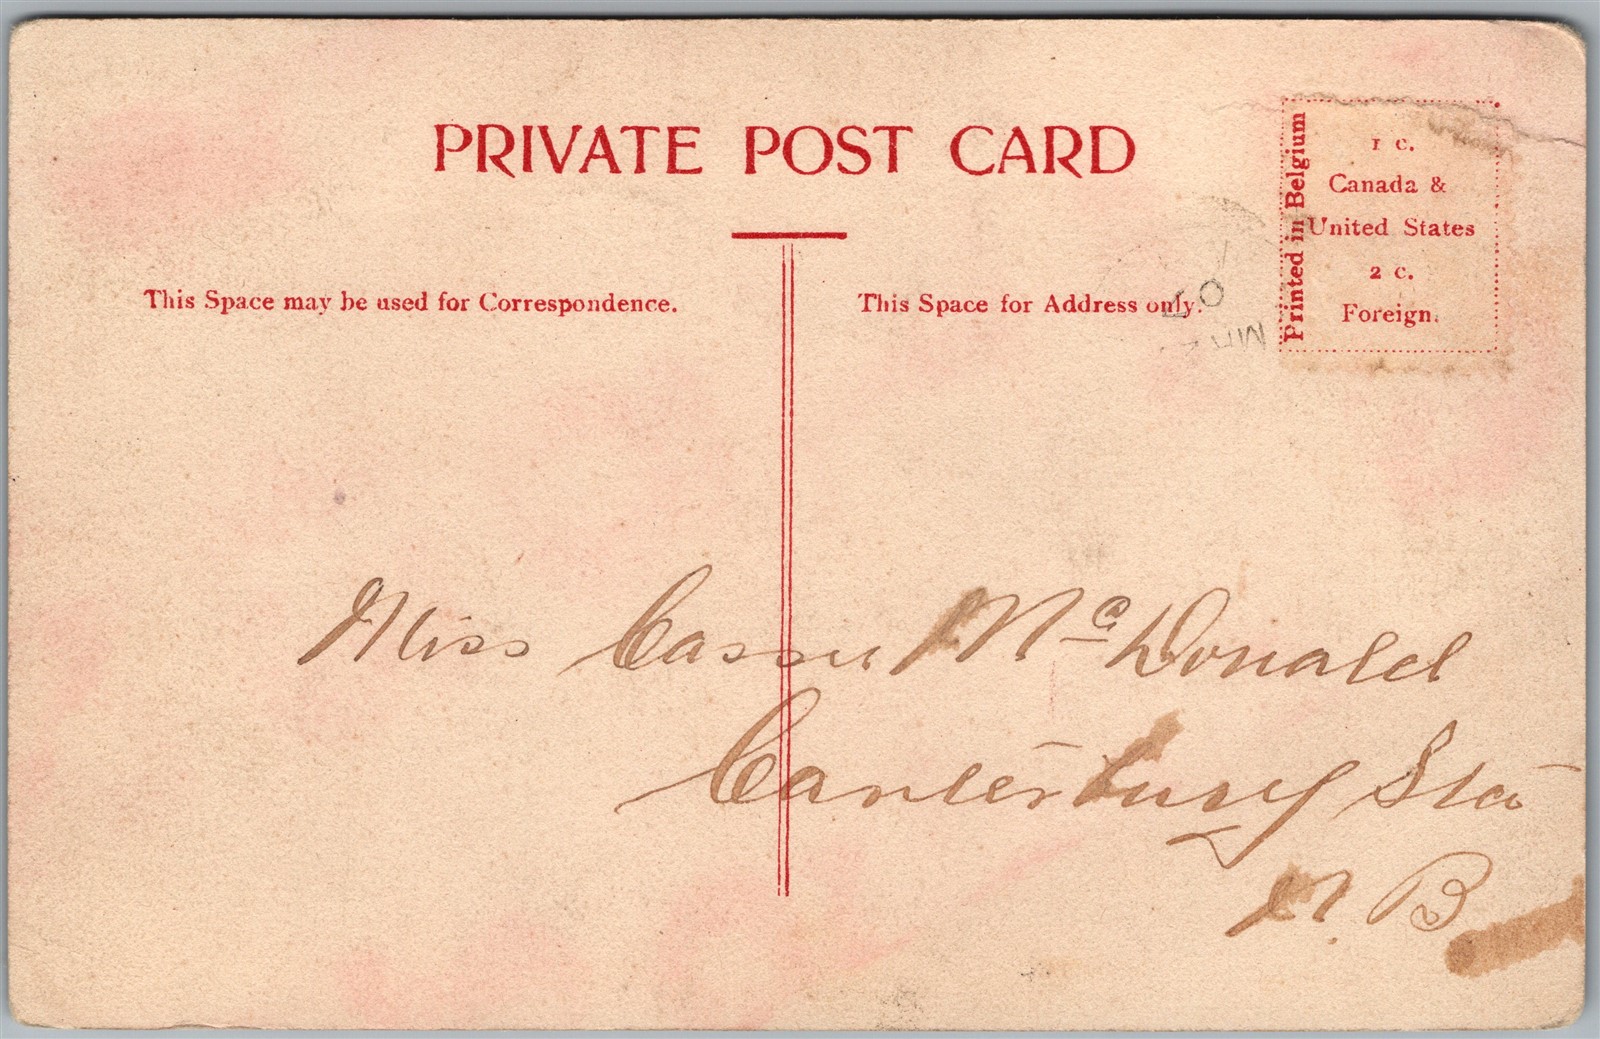 PRIVATE POST CARD
This Space may be used for Correspondence.
This Space for Address only.
Printed in Belgium
1 c.
Canada &
United States
2 c.
Foreign.
Miss Cassie McDonald
Canterbury Sta
N. B